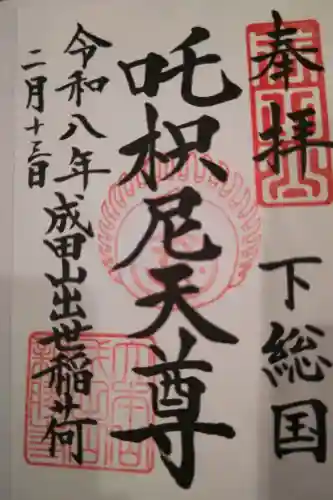 奉拝
下総国
吒枳尼天尊
成田山出世稲荷
令和八年
二月十三日